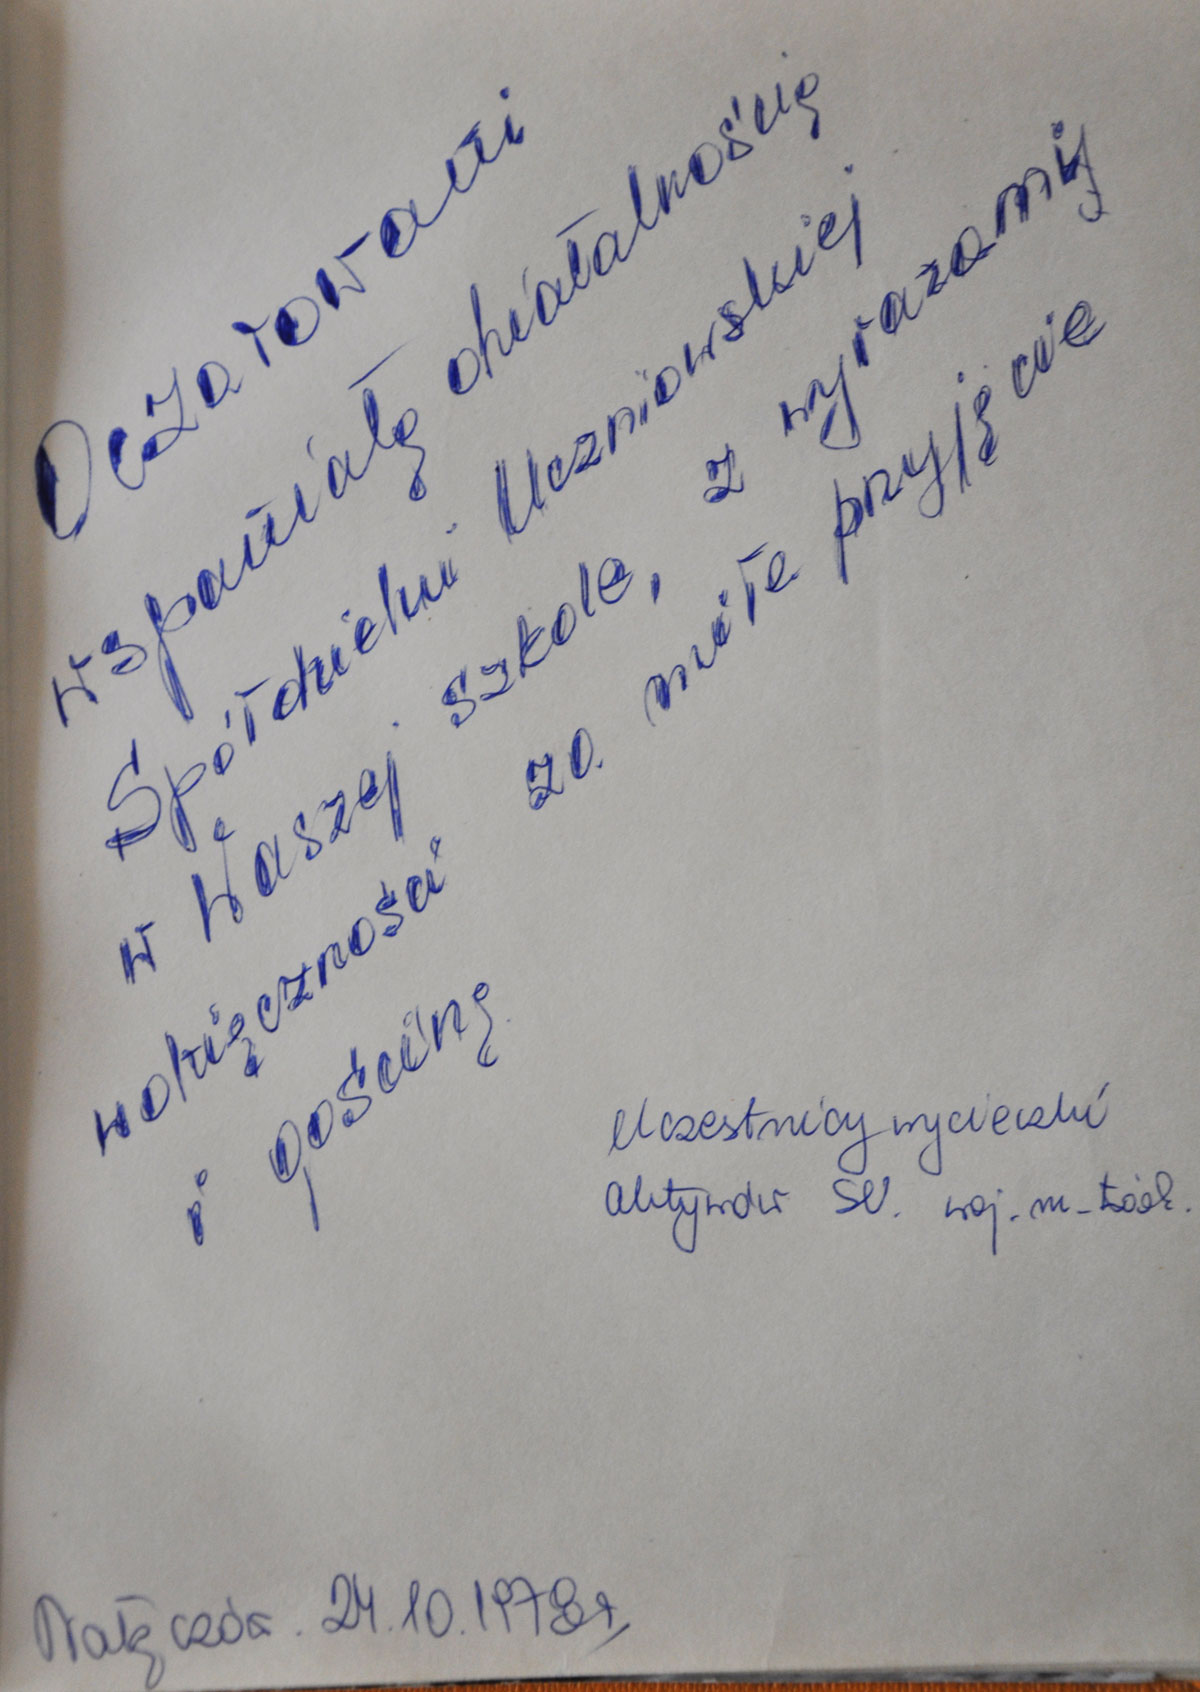 Oczarowani
wspaniałą działalnością
Spółdzielni Uczniowskiej
w Waszej szkole, z wyrazamy
wdzięczności za miłe przyjęcie
i gościnę.
Uczestnicy wycieczki
aktywów SU. woj. m-Łódź.
Nałęczów. 24.10.1978r,